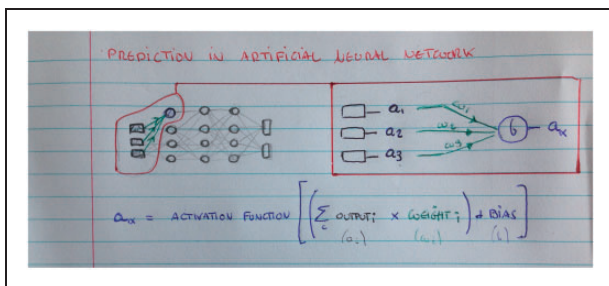 PREDICTION IN ARTIFICIAL NEURAL NETWORK
a₁ w₁
a₂ w₂
a₃ w₃
b aₓ
aₓ = ACTIVATION FUNCTION [( Σᵢ OUTPUTᵢ × WEIGHTᵢ ) + BIAS ]
(aᵢ) (wᵢ) (b)